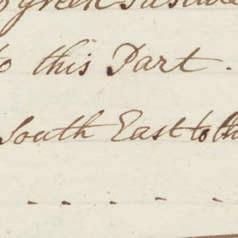 green
this Part.
South East to th
- - - - -